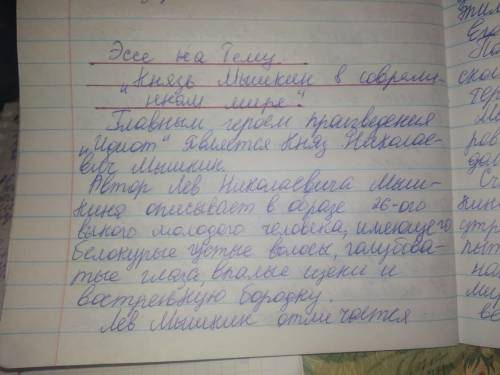 Эссе на Тему
„Князь Мышкин в совреме-
нном мире".
Главным героем произведения
„Идиот" является Княз Николае-
вич Мышкин.
Автор Лев Николаевича Мыш-
кина описывает в образе 26-ого
выкого молодого человека, имеющего
белокурые густые волосы, голубова-
тые глаза, впалые щеки и
востренькую бородку.
Лев Мышкин отличается